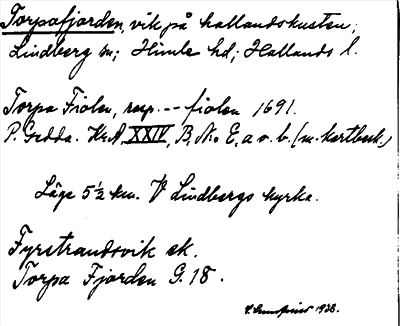 Torpafjorden, vik på hallandskusten;
Lindberg sn; Himle hd; Hallands l.
Torpa Fiolen, resp. -- fiolen 1691.
P. Gedda. Kr.A. XXIV, B, No E, a o. b. (m. kartbesk.)
Läge 5½ km. V Lindbergs kyrka.
Fyrstrandsvik ek.
Torpa Fjorden G. 18.
1938.